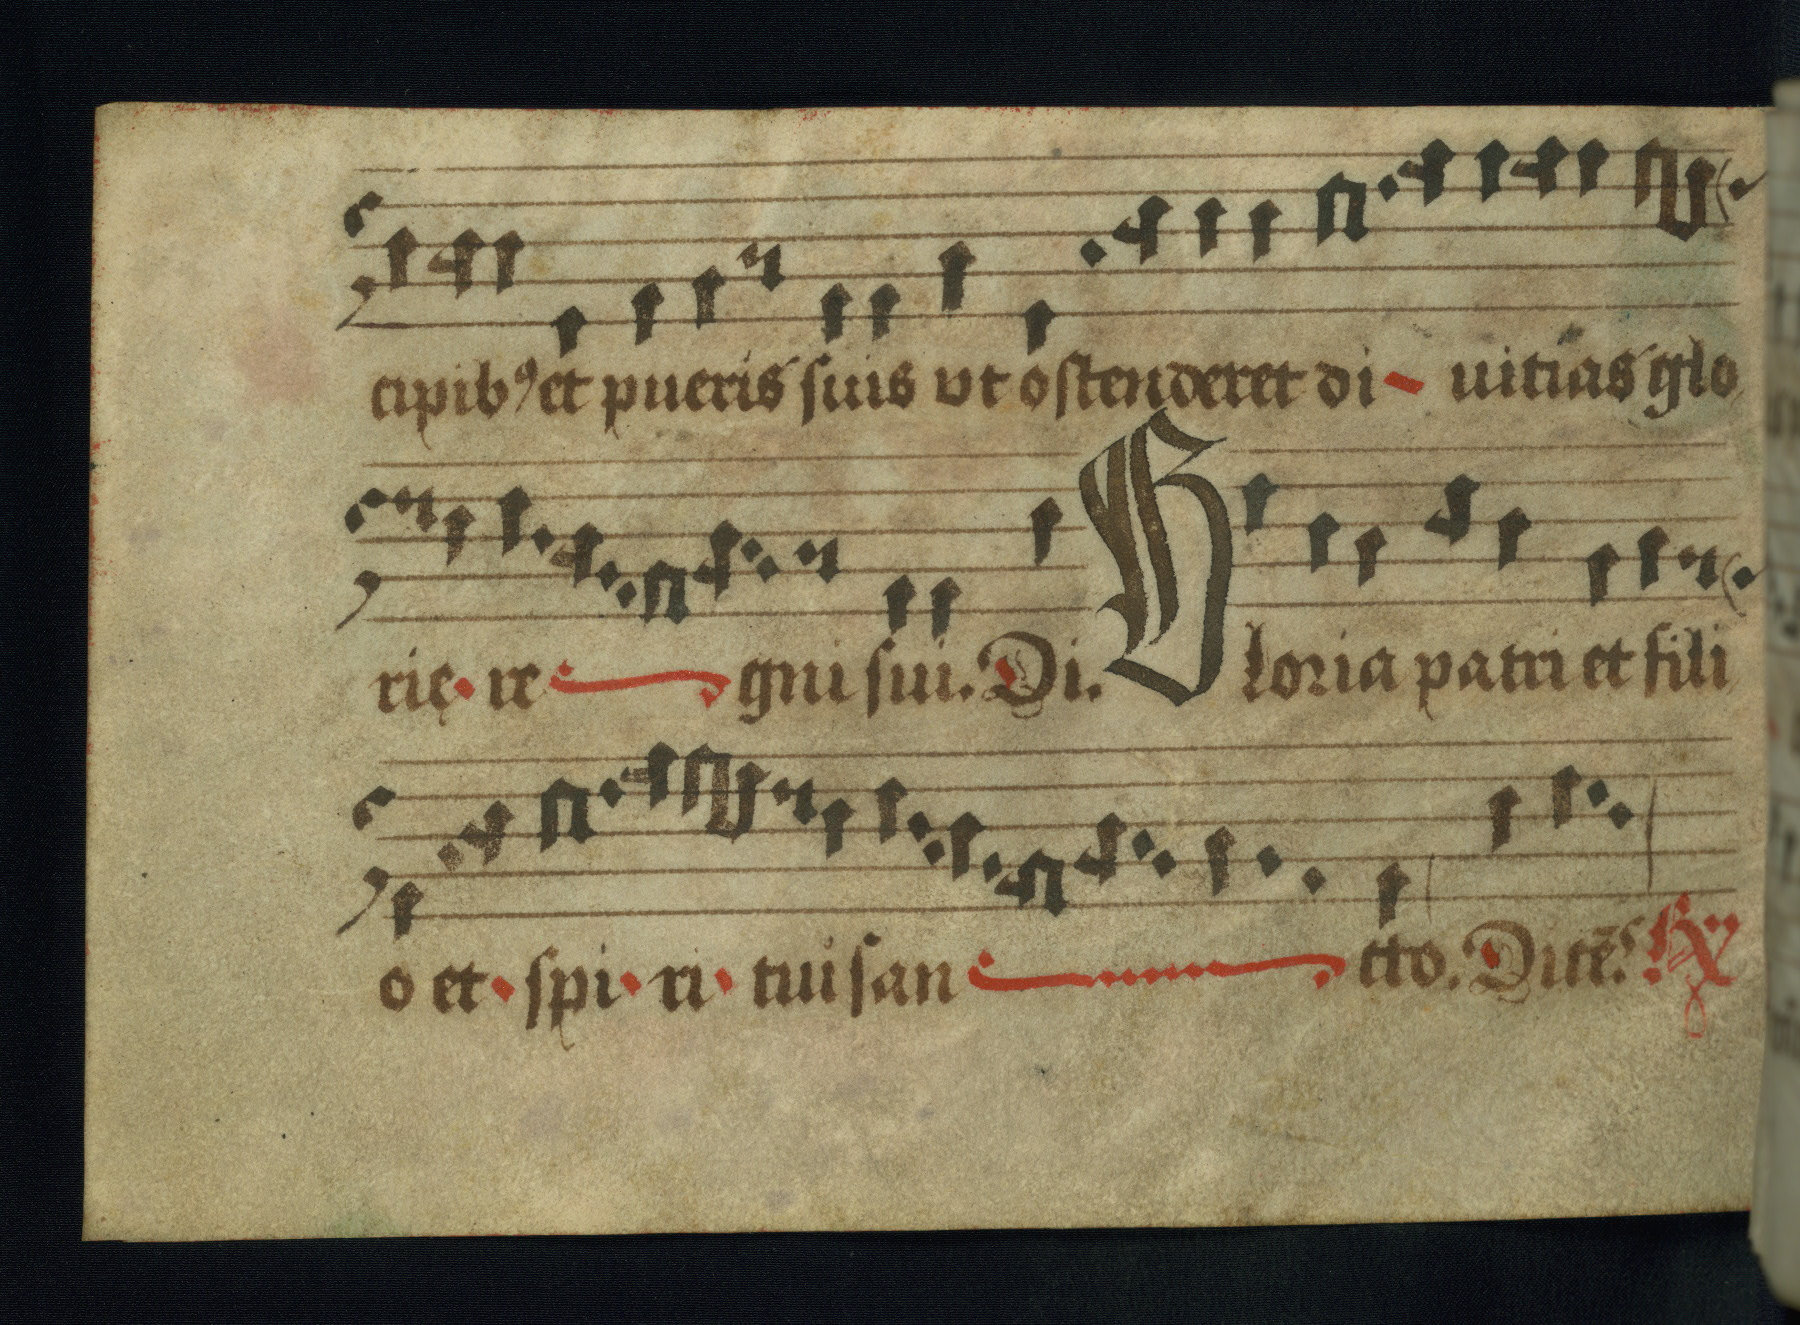 cipib⁹ et pueris suis vt ostenderet di- uitias glo
rię re gni sui. Di. Gloria patri et fili
o et spi ri tui san cto. Ditē.